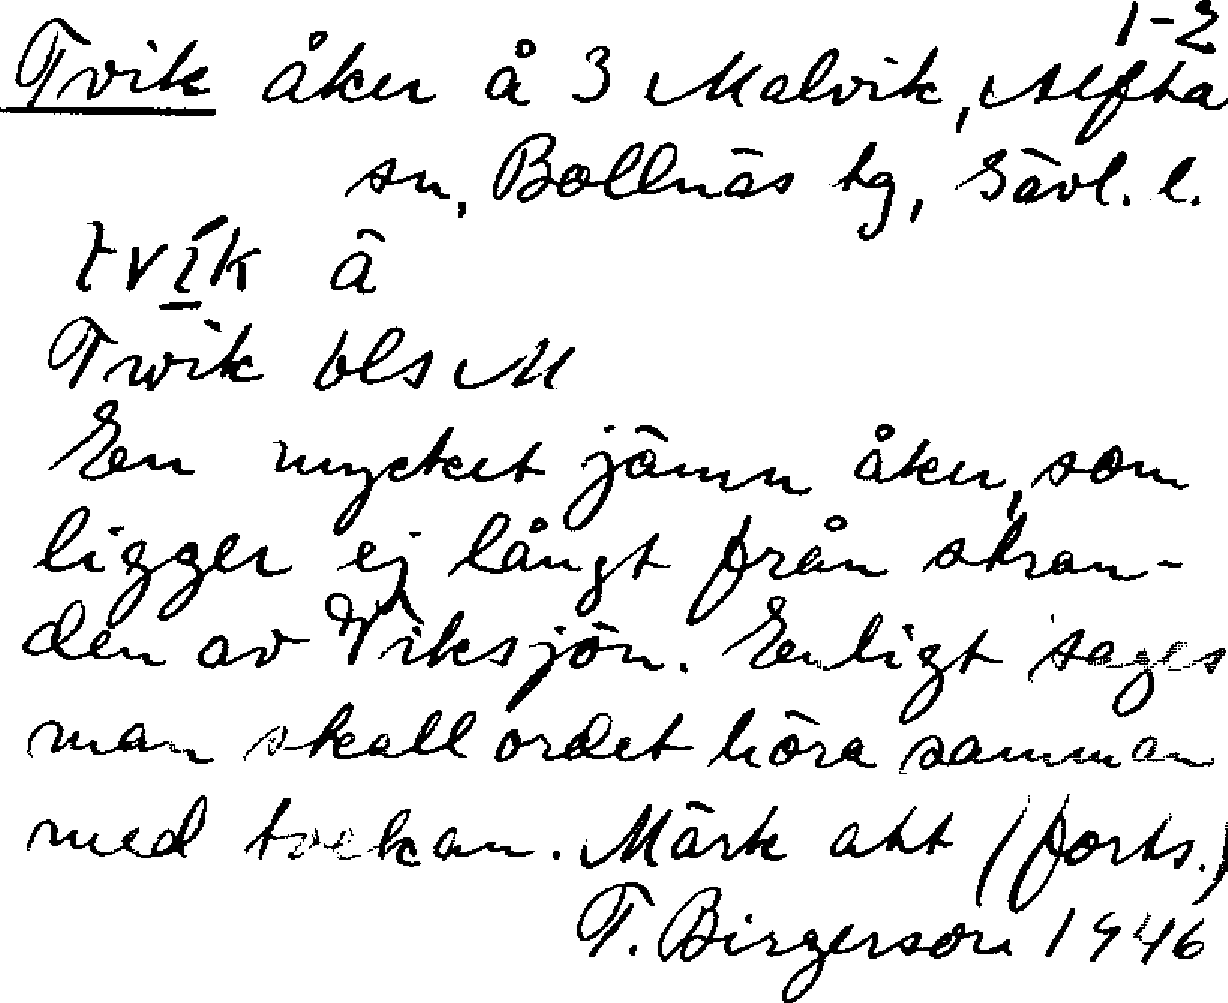 1-2
Tvik åker å 3 Malvik, Alfta
sn, Bollnäs tg, Gävl. l.
tví̲k ā
Twik bls M
En mycket jämn åker, som
ligger ej långt från stran-
den av Viksjön. Enligt sages
man skall ordet höra samman
med tvekan. Märk att (forts.)
F. Birgerson 1946